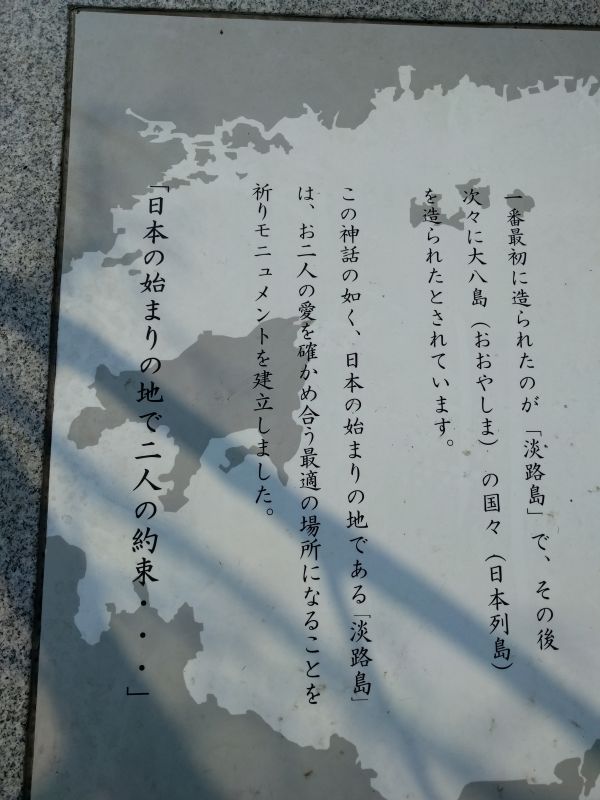 一番最初に造られたのが「淡路島」で、その後
次々に大八島（おおやしま）の国々（日本列島）
を造られたとされています。
この神話の如く、日本の始まりの地である「淡路島」
は、お二人の愛を確かめ合う最適の場所になることを
祈りモニュメントを建立しました。
「日本の始まりの地で二人の約束・・・」